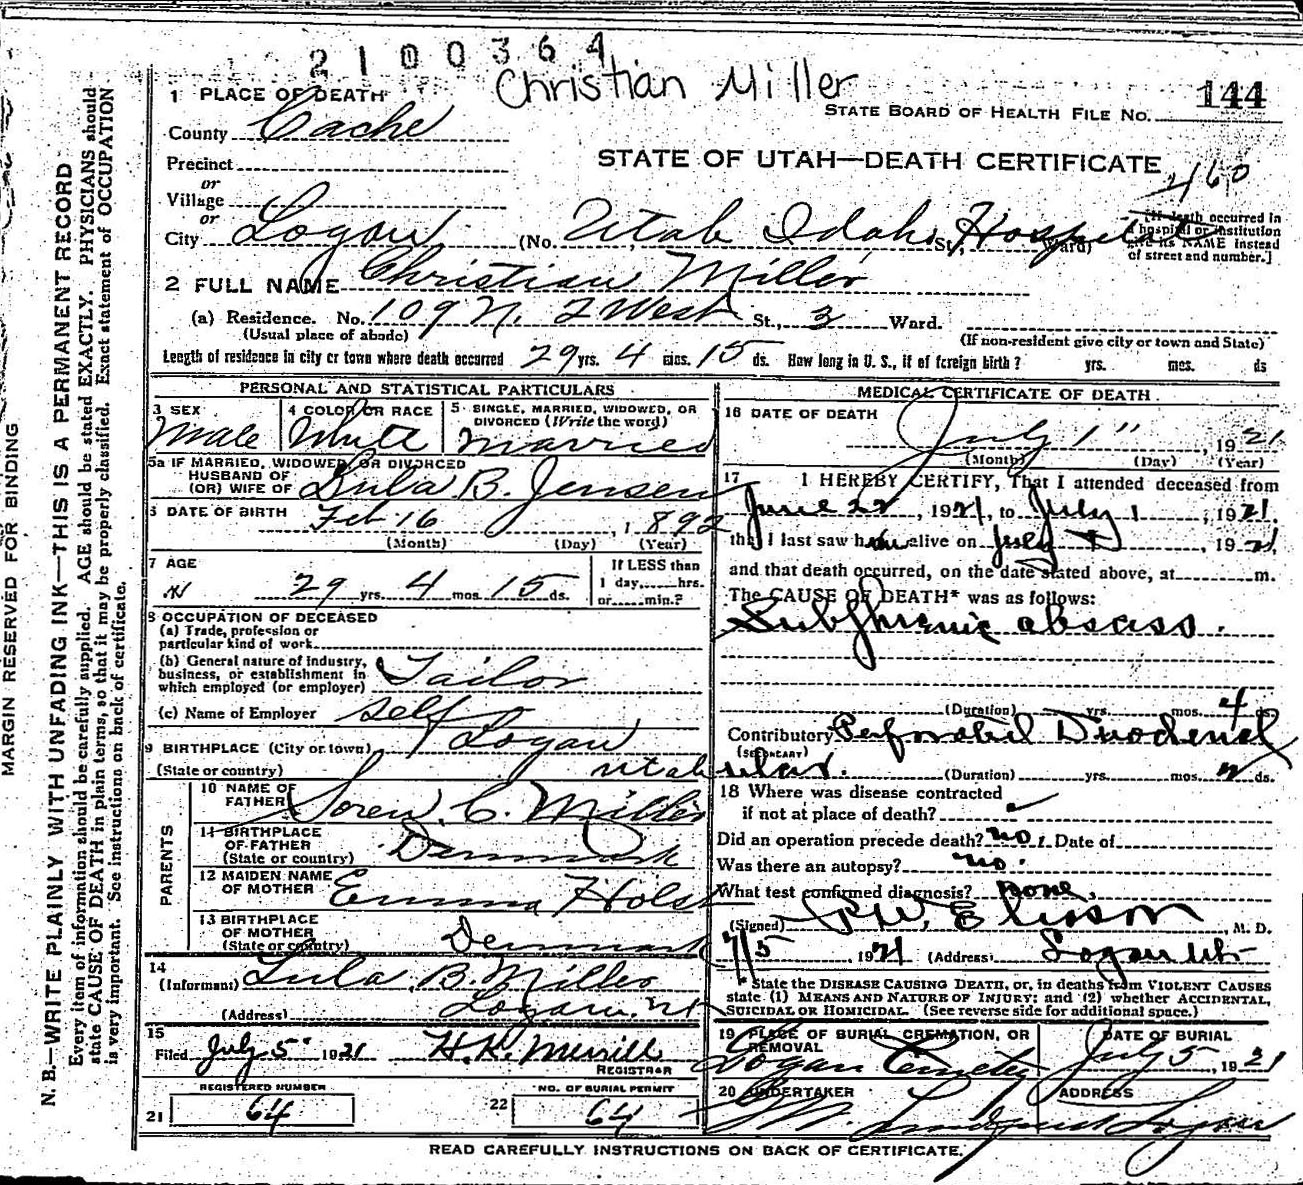 2100364
Christian Miller
144
STATE BOARD OF HEALTH FILE NO.
1 PLACE OF DEATH
County Cache
STATE OF UTAH—DEATH CERTIFICATE
460
Precinct
or
Village
or
City Logan (No. Utah Idaho Hospital St., Ward)
[If death occurred in
hospital or institution
give its NAME instead
of street and number.]
2 FULL NAME Christian Miller
(a) Residence. No. 109 N. 2 West St., 3 Ward.
(Usual place of abode) (If non-resident give city or town and State)
Length of residence in city or town where death occurred 29 yrs. 4 mos. 15 ds. How long in U. S., if of foreign birth? yrs. mos. ds
PERSONAL AND STATISTICAL PARTICULARS
3 SEX
Male
4 COLOR OR RACE
White
5 SINGLE, MARRIED, WIDOWED, OR
DIVORCED (Write the word)
Married
5a IF MARRIED, WIDOWED, OR DIVORCED
HUSBAND OF
(OR) WIFE OF Lula B. Jensen
6 DATE OF BIRTH
Feb 16, 1892
(Month) (Day) (Year)
7 AGE
29 yrs. 4 mos. 15 ds.
If LESS than
1 day,......hrs.
or......min.?
8 OCCUPATION OF DECEASED
(a) Trade, profession or
particular kind of work
(b) General nature of industry,
business, or establishment in
which employed (or employer) Tailor
(c) Name of Employer self
9 BIRTHPLACE (City or town) Logan
(State or country) Utah
PARENTS
10 NAME OF
FATHER Soren C. Miller
11 BIRTHPLACE
OF FATHER
(State or country) Denmark
12 MAIDEN NAME
OF MOTHER Emma Holst
13 BIRTHPLACE
OF MOTHER
(State or country) Denmark
14
(Informant) Lula B. Miller
(Address) Logan, Ut
15
Filed July 5 1921 H. K. Merrill
REGISTRAR
REGISTERED NUMBER
21 64
NO. OF BURIAL PERMIT
22 64
MEDICAL CERTIFICATE OF DEATH
16 DATE OF DEATH
July 1", 1921
(Month) (Day) (Year)
17 I HEREBY CERTIFY, That I attended deceased from
June 22, 1921, to July 1, 1921.
that I last saw him alive on July 1, 1921,
and that death occurred, on the date stated above, at m.
The CAUSE OF DEATH* was as follows:
Subphrenic abscess.
(Duration) yrs. mos. 4 ds.
Contributory Perforated Duodenal
(SECONDARY)
ulcer. (Duration) yrs. mos. ds.
18 Where was disease contracted
if not at place of death?
Did an operation precede death? no. Date of
Was there an autopsy? no.
What test confirmed diagnosis? none.
(Signed) M. D.
7/5, 1921 (Address) Logan Ut
* State the DISEASE CAUSING DEATH, or, in deaths from VIOLENT CAUSES
state (1) MEANS AND NATURE OF INJURY; and (2) whether ACCIDENTAL,
SUICIDAL OR HOMICIDAL. (See reverse side for additional space.)
19 PLACE OF BURIAL, CREMATION, OR
REMOVAL
Logan Cemetery
DATE OF BURIAL
July 5, 1921
20 UNDERTAKER
Lindquist
ADDRESS
Logan
READ CAREFULLY INSTRUCTIONS ON BACK OF CERTIFICATE.
MARGIN RESERVED FOR BINDING
N. B.—WRITE PLAINLY WITH UNFADING INK—THIS IS A PERMANENT RECORD
Every item of information should be carefully supplied. AGE should be stated EXACTLY. PHYSICIANS should
state CAUSE OF DEATH in plain terms, so that it may be properly classified. Exact statement of OCCUPATION
is very important. See instructions on back of certificate.